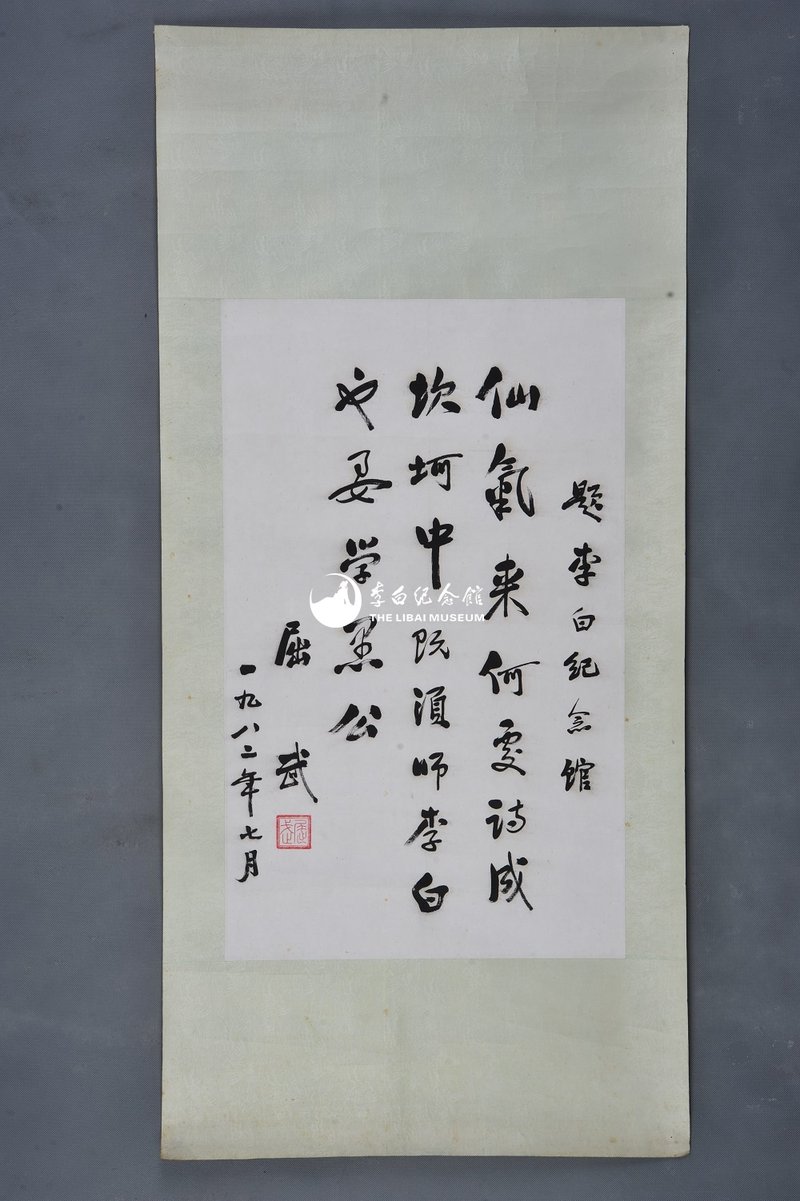 题李白纪念馆
仙氣来何处诗成
坎坷中既须师李白
也要学愚公
屈武
一九八二年七月
屈武
李白纪念馆
THE LIBAI MUSEUM